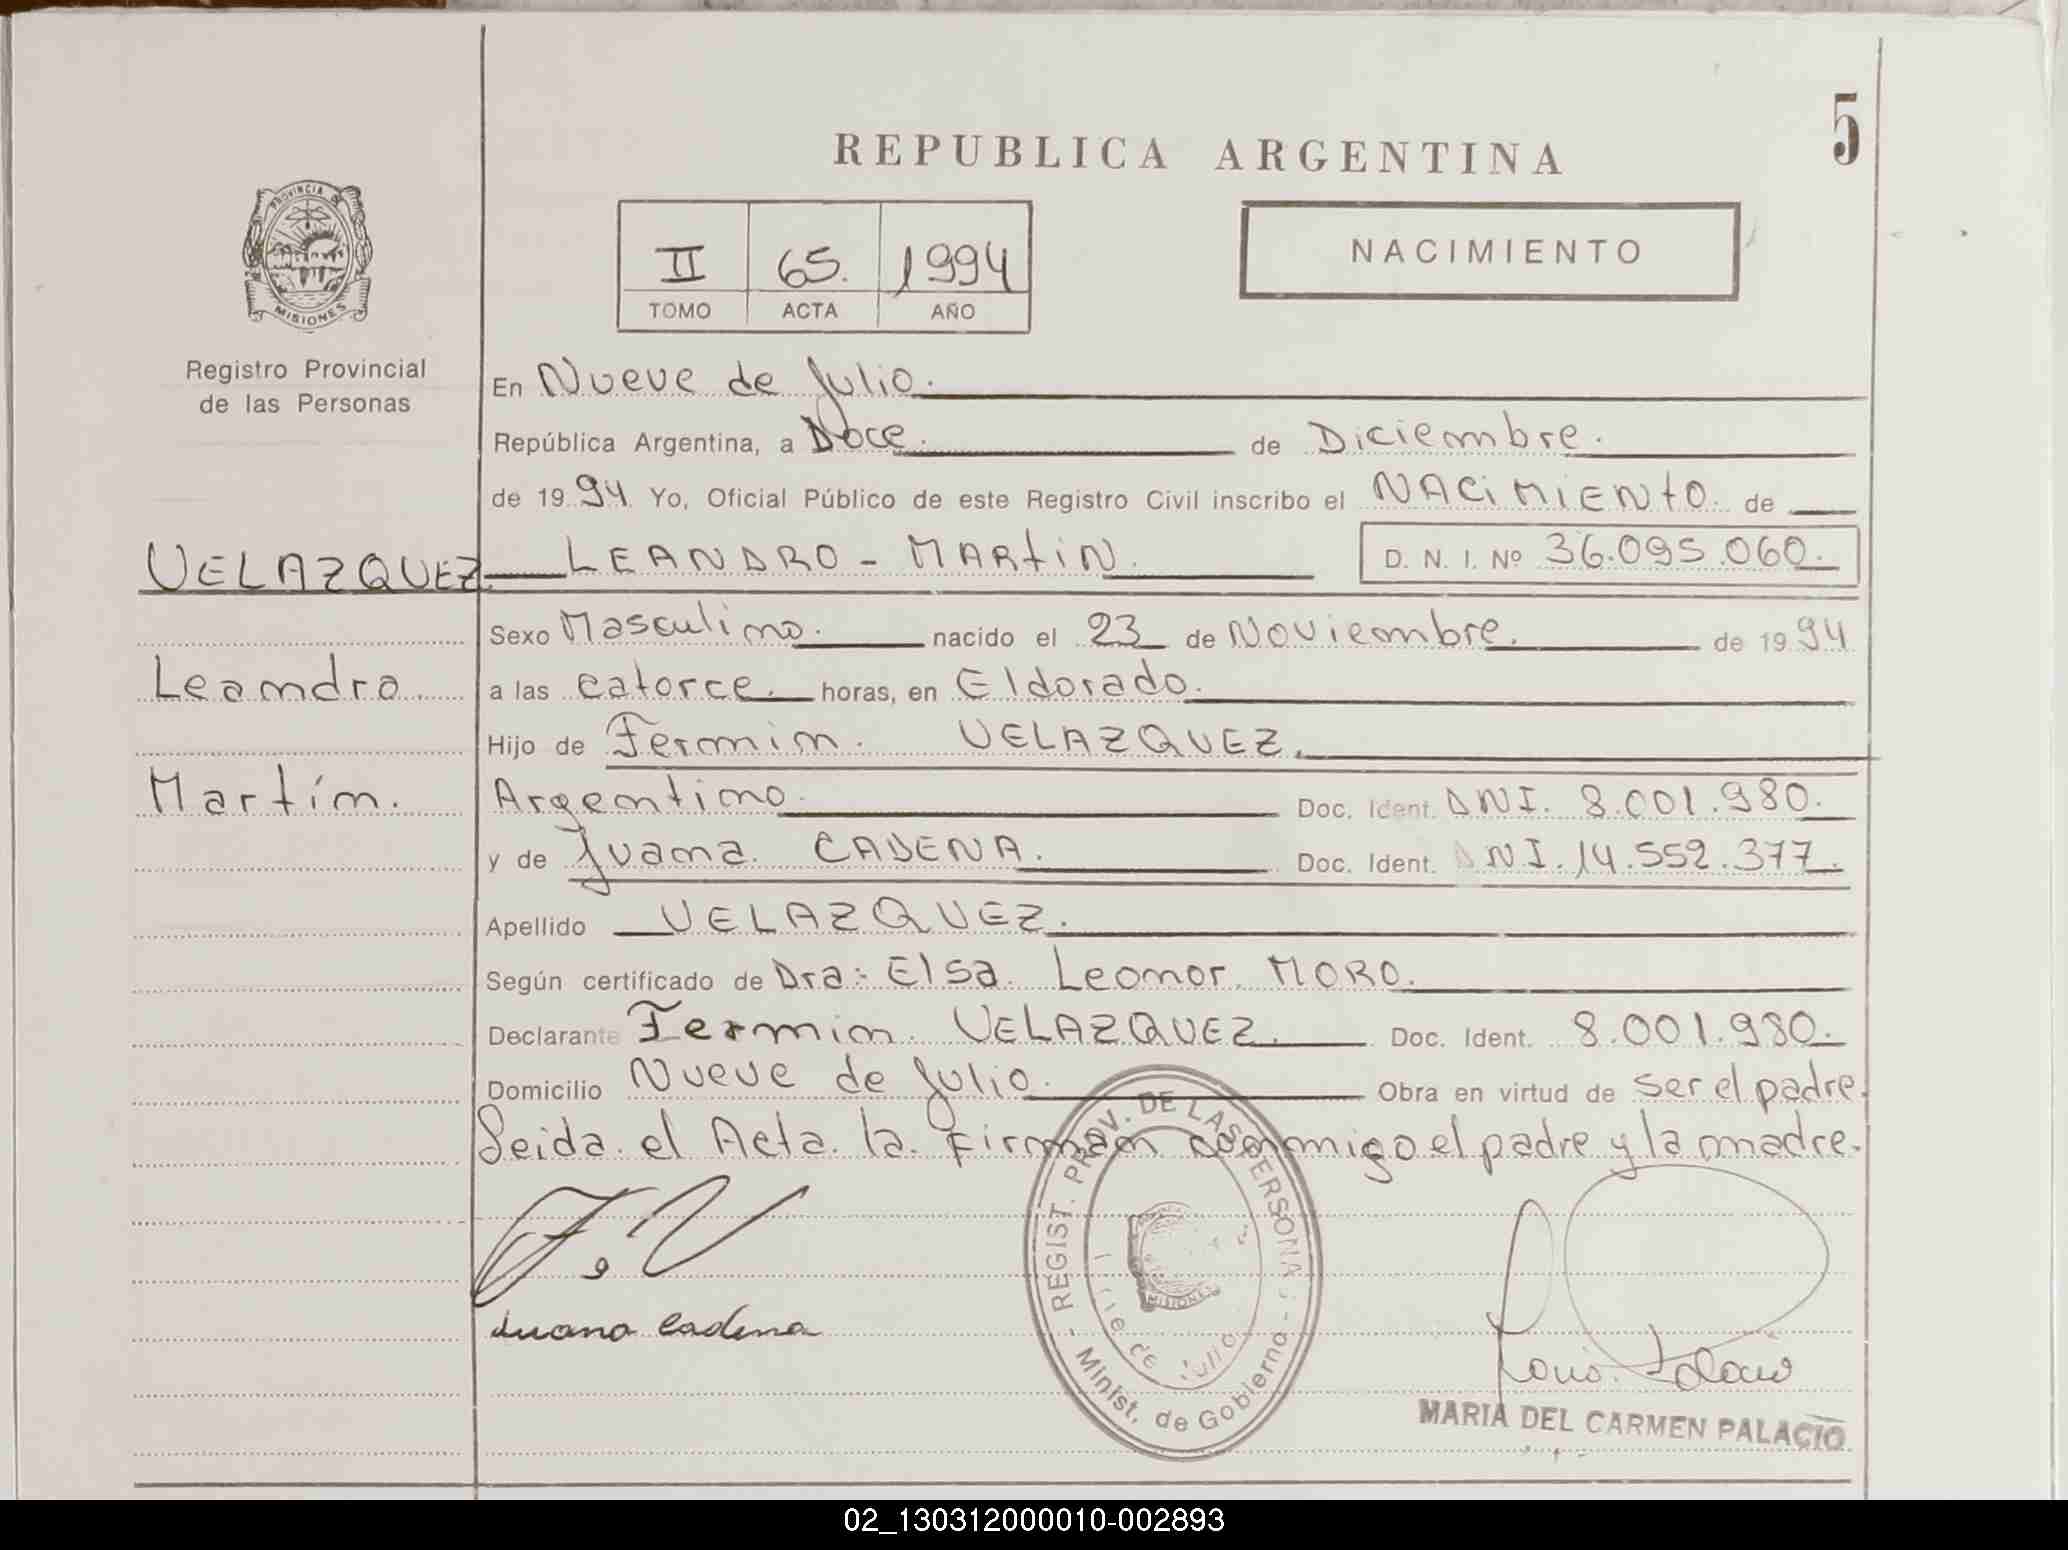 REPUBLICA ARGENTINA
5
PROVINCIA DE
MISIONES
Registro Provincial
de las Personas
II 65. 1994
TOMO ACTA AÑO
NACIMIENTO
En Nueve de Julio.
República Argentina, a Doce. de Diciembre.
de 1994 Yo, Oficial Público de este Registro Civil inscribo el NACIMIENTO. de
VELAZQUEZ. LEANDRO - MARTIN. D. N. I. Nº 36.095.060.
Sexo Masculino. nacido el 23 de Noviembre. de 1994
Leandro a las catorce. horas, en Eldorado.
Hijo de Fermin. VELAZQUEZ.
Martín. Argentino. Doc. Ident. DNI. 8.001.980.
y de Juana. CADENA. Doc. Ident. DNI. 14.552.377.
Apellido VELAZQUEZ.
Según certificado de Dra: Elsa. Leonor. MORO.
Declarante Fermin. VELAZQUEZ. Doc. Ident. 8.001.980.
Domicilio Nueve de Julio. Obra en virtud de ser el padre.
Leida. el Acta. la. firman conmigo el padre y la madre.
F. V
Juana Cadena
REGIST. PROV. DE LAS PERSONAS
MISIONES
de Julio
- Minist. de Gobierno -
MARIA DEL CARMEN PALACIO
02_130312000010-002893